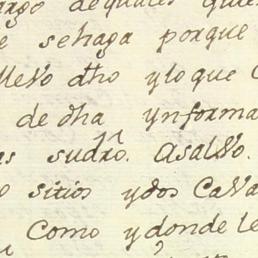 argo dequales quie
e sehaga porque
lleVo dho yloque
de dha ynforma
as sudro. aSalVo.
sitios ydos CaVa
Como ydonde le